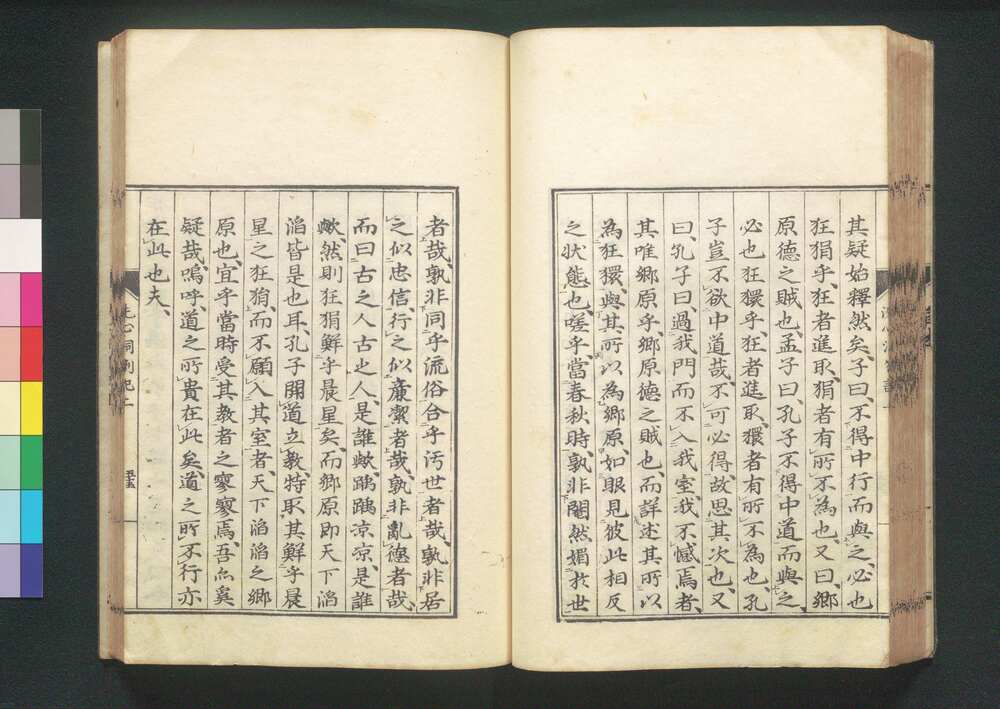 其疑始釋然矣、子曰、不得中行而與之、必也
狂狷乎、狂者進取、狷者有所不為也、又曰、鄉
原德之賊也、孟子曰、孔子不得中道而與之、
必也狂獧乎、狂者進取、獧者有所不為也、孔
子豈不欲中道哉、不可必得、故思其次也、又
曰、孔子曰、過我門而不入我室、我不憾焉者、
其唯鄉原乎、鄉原德之賊也、而詳述其所以
為狂獧、與其所以為鄉原、如眼見彼此相反
之狀態也、嗟乎、當春秋時、孰非閹然媚於世
者哉、孰非同乎流俗合乎汚世者哉、孰非居
之似忠信、行之似廉潔者哉、孰非亂德者哉、
而曰古之人古之人、是誰歟、踽踽凉凉、是誰
歟、然則狂狷鮮乎晨星矣、而鄉原即天下滔
滔皆是也耳、孔子開道立教、特取其鮮乎晨
星之狂狷、而不願入其室者、天下滔滔之鄉
原也、宜乎當時受其教者之寥寥焉、吾亦奚
疑哉、嗚呼、道之所貴在此矣、道之所不行亦
在此也夫、